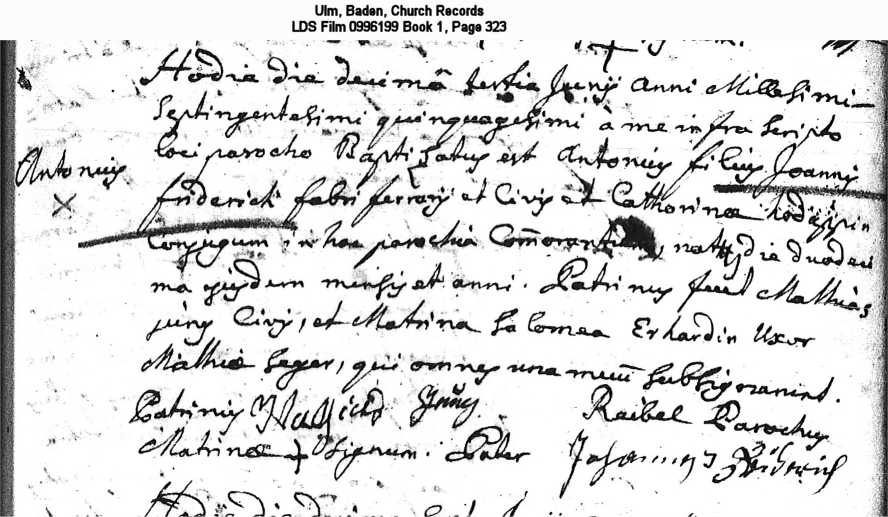 Ulm, Baden, Church Records
LDS Film 0996199 Book 1, Page 323
Hodie die decimâ tertia Junij anni Millesimi
Septingentesimi quinquagesimi à me infra scripto
loci parocho Baptisatus est Antonius filius Joannis
Antonius
friderich fabri ferrarij et Civis et Catharinæ
Conjugum in hac parochia Com̄orantium, natus die duodeci
ma ejusdem mensis et anni. Patrinus fuit Mathias
jung Civis, et Matrina Salomea Erhardin Uxor
Mathiæ Seger, qui omnes una mecū subsignarunt.
Patrinus Jung Raibel Parochus
Matrinæ + Signum. Pater Johannes friderich
Hodie die